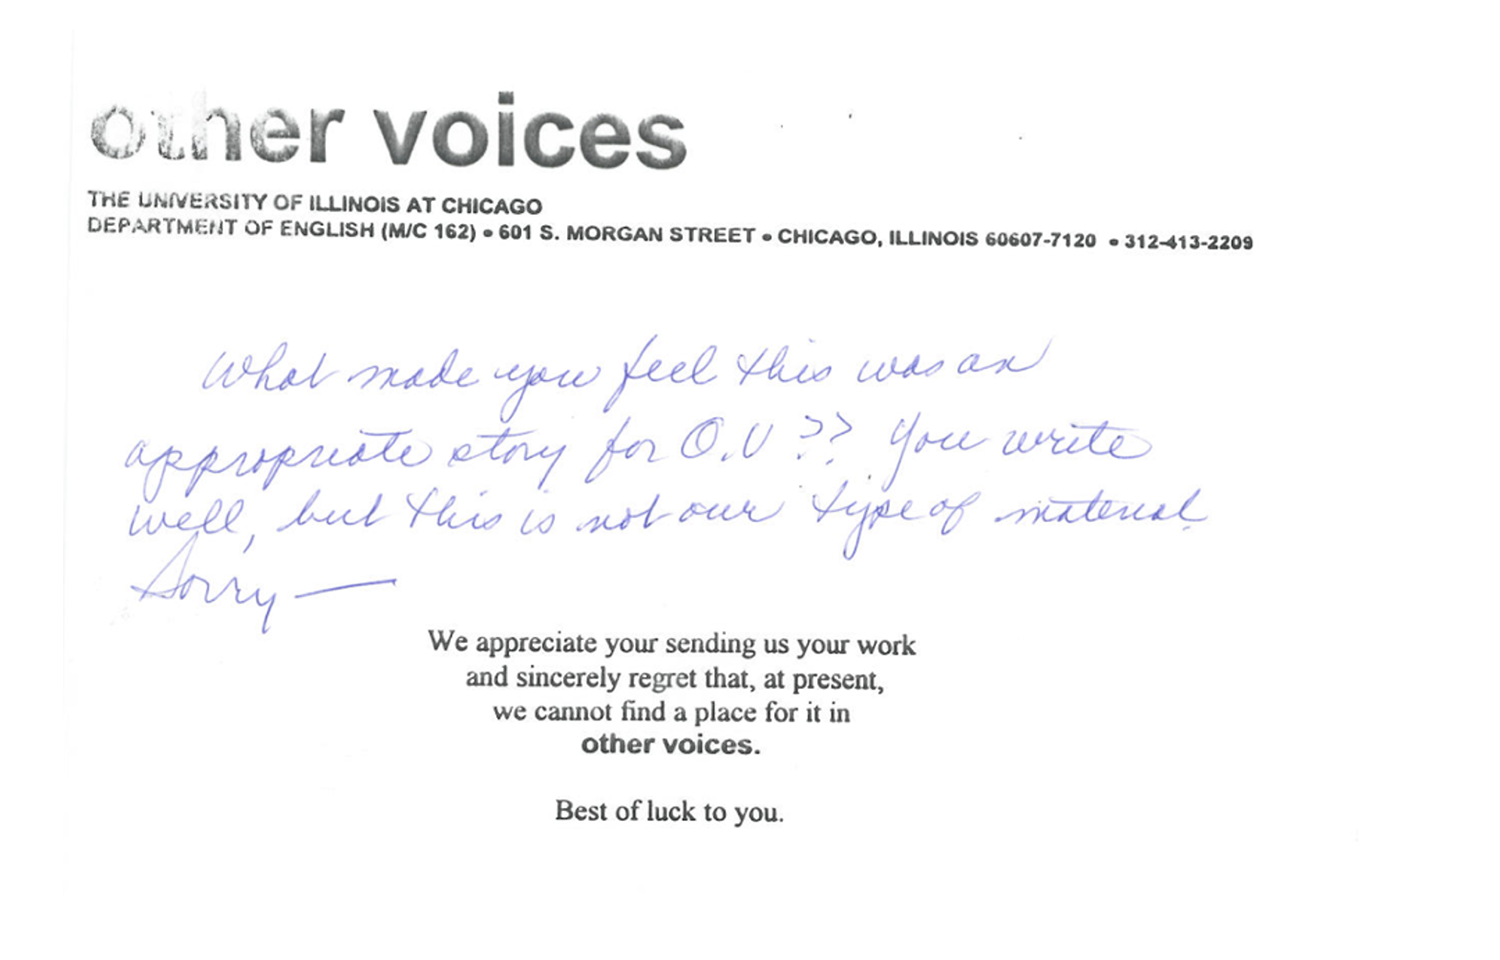 other voices
THE UNIVERSITY OF ILLINOIS AT CHICAGO
DEPARTMENT OF ENGLISH (M/C 162) • 601 S. MORGAN STREET • CHICAGO, ILLINOIS 60607-7120 • 312-413-2209
What made you feel this was an
appropriate story for O.V ?? You write
well, but this is not our type of material.
Sorry —
We appreciate your sending us your work
and sincerely regret that, at present,
we cannot find a place for it in
other voices.
Best of luck to you.